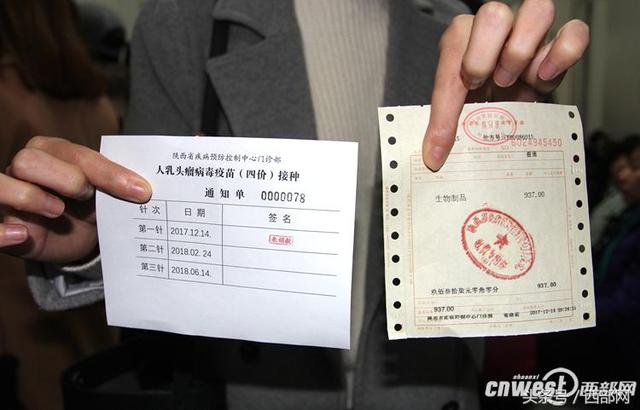 陕西省疾病预防控制中心门诊部
人乳头瘤病毒疫苗（四价）接种
通知单 0000078
针次 日期 签名
第一针 2017.12.14.
第二针 2018.02.24
第三针 2018.06.14.
6024945450
生物制品 937.00
玖佰叁拾柒元零角零分 937.00
937.00
cnwest 西部网
头条号／西部网